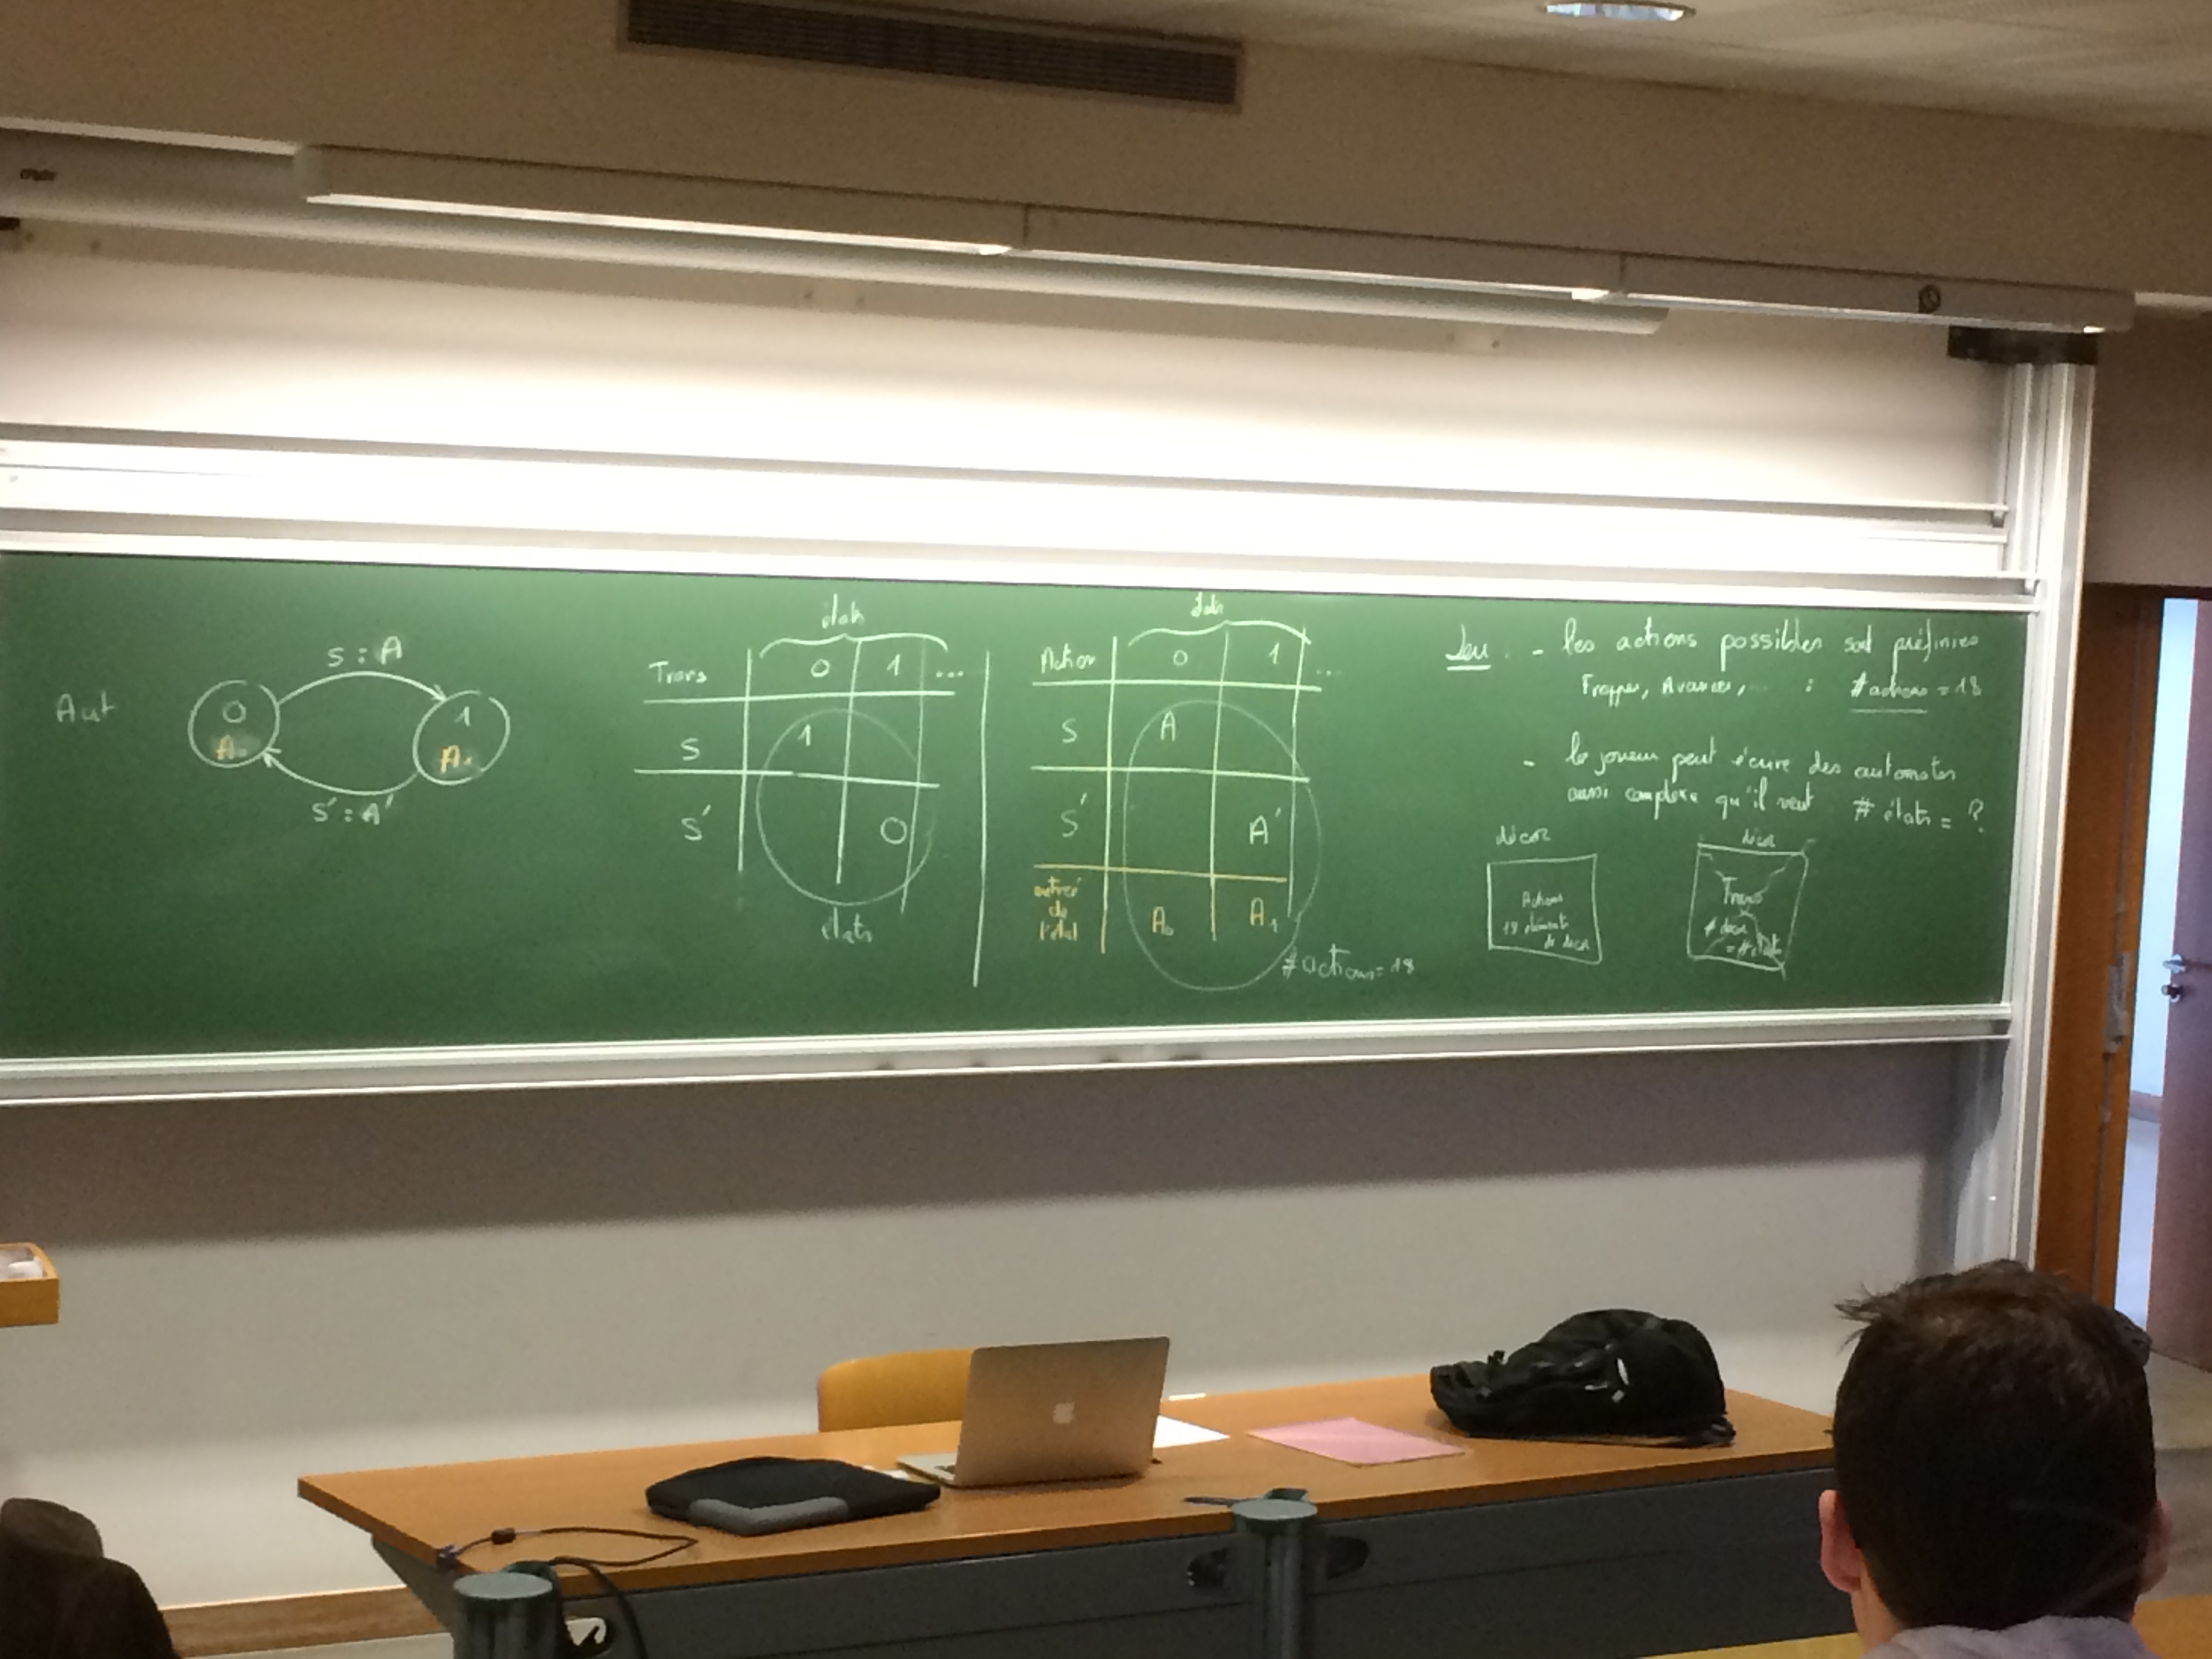 Aut
S : A
0
A₀
1
A₁
S' : A'
états
Trans
0
1
...
S
1
S'
0
états
états
Action
0
1
...
S
A
S'
A'
entrée
de
l'état
A₀
A₁
# actions = 18
Jeu : - les actions possibles sont prédéfinies
Frapper, Avancer, ... : # actions = 18
- le joueur peut écrire des automates
aussi complexe qu'il veut # états = ?
décor
Actions
18 élément
de décor
décor
Trans
# décor
= # états